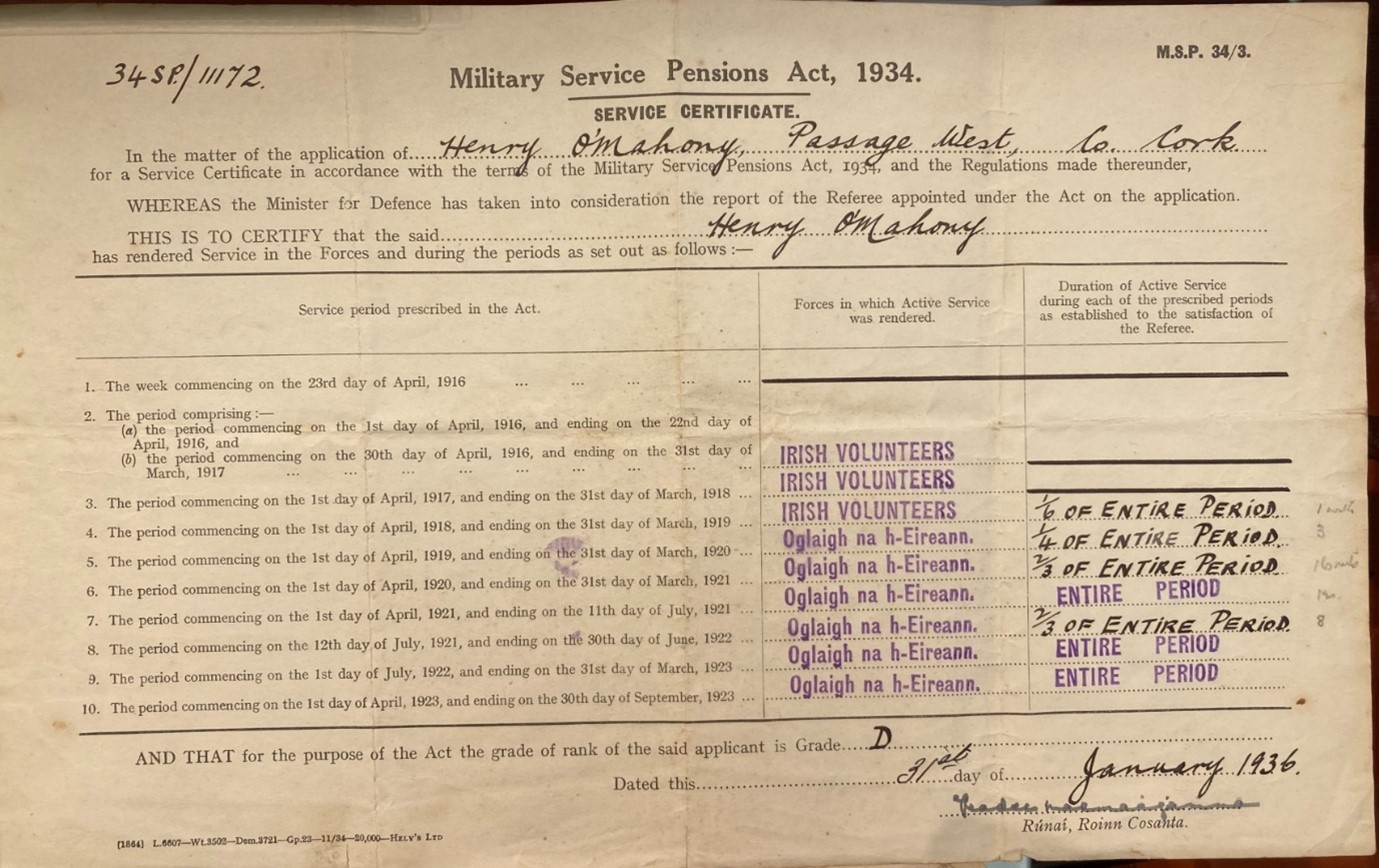 34 S.P./11172.
M.S.P. 34/3.
Military Service Pensions Act, 1934.
SERVICE CERTIFICATE.
In the matter of the application of Henry O'Mahony, Passage West, Co. Cork
for a Service Certificate in accordance with the terms of the Military Service Pensions Act, 1934, and the Regulations made thereunder,
WHEREAS the Minister for Defence has taken into consideration the report of the Referee appointed under the Act on the application.
THIS IS TO CERTIFY that the said Henry O'Mahony
has rendered Service in the Forces and during the periods as set out as follows :—
Service period prescribed in the Act.
Forces in which Active Service
was rendered.
Duration of Active Service
during each of the prescribed periods
as established to the satisfaction of
the Referee.
1. The week commencing on the 23rd day of April, 1916 ... ... ... ... ...
2. The period comprising :—
(a) the period commencing on the 1st day of April, 1916, and ending on the 22nd day of
April, 1916, and
(b) the period commencing on the 30th day of April, 1916, and ending on the 31st day of
March, 1917 ... ... ... ... ... ... ... ... ...
IRISH VOLUNTEERS
3. The period commencing on the 1st day of April, 1917, and ending on the 31st day of March, 1918 ...
IRISH VOLUNTEERS
4. The period commencing on the 1st day of April, 1918, and ending on the 31st day of March, 1919 ...
IRISH VOLUNTEERS
1/6 OF ENTIRE PERIOD
5. The period commencing on the 1st day of April, 1919, and ending on the 31st day of March, 1920 ...
Oglaigh na h-Eireann.
1/4 OF ENTIRE PERIOD.
3
6. The period commencing on the 1st day of April, 1920, and ending on the 31st day of March, 1921 ...
Oglaigh na h-Eireann.
2/3 OF ENTIRE PERIOD
7. The period commencing on the 1st day of April, 1921, and ending on the 11th day of July, 1921 ...
Oglaigh na h-Eireann.
ENTIRE PERIOD
8. The period commencing on the 12th day of July, 1921, and ending on the 30th day of June, 1922 ...
Oglaigh na h-Eireann.
2/3 OF ENTIRE PERIOD.
8
9. The period commencing on the 1st day of July, 1922, and ending on the 31st day of March, 1923 ...
Oglaigh na h-Eireann.
ENTIRE PERIOD
10. The period commencing on the 1st day of April, 1923, and ending on the 30th day of September, 1923 ...
Oglaigh na h-Eireann.
ENTIRE PERIOD
AND THAT for the purpose of the Act the grade of rank of the said applicant is Grade D
Dated this 31st day of January 1936.
Rúnaí, Roinn Cosanta.
(1864) L.6607—Wt.3502—Dem.3721—Gp.23—11/34—20,000—HELY'S LTD